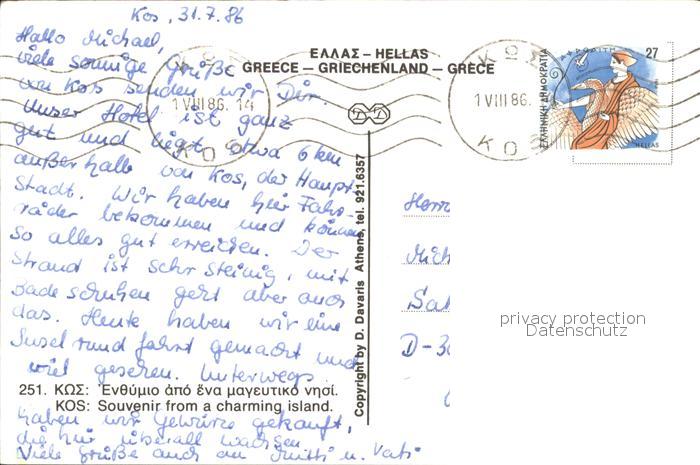 Kos, 31.7.86
Hallo Michael,
viele sonnige Grüße
von Kos senden wir Dir.
Unser Hotel ist ganz
gut und liegt etwa 6 km
außerhalb von Kos, der Haupt-
stadt. Wir haben hier Fahr-
räder bekommen und können
so alles gut erreichen. Der
Strand ist sehr steinig, mit
Badeschuhen geht aber auch
das. Heute haben wir eine
Inselrundfahrt gemacht und
viel gesehen. Unterwegs
251. ΚΩΣ: Ἐνθύμιο ἀπό ἕνα μαγευτικό νησί.
KOS: Souvenir from a charming island.
haben wir Gewürze gekauft,
die hier überall wachsen.
Viele Grüße auch an Mutti u. Vati
ΕΛΛΑΣ – HELLAS
GREECE – GRIECHENLAND – GRÈCE
ΚΩΣ
1 VIII 86. 14
ΚΟ
ΚΩΣ
1 VIII 86.
ΚΟ
ΕΛΛΗΝΙΚΗ ΔΗΜΟΚΡΑΤΙΑ
ΑΦΡΟΔΙΤΗ
27
HELLAS
Copyright by D. Davaris Athens, tel. 921.6357
Herrn
Mich
D-30
privacy protection
Datenschutz